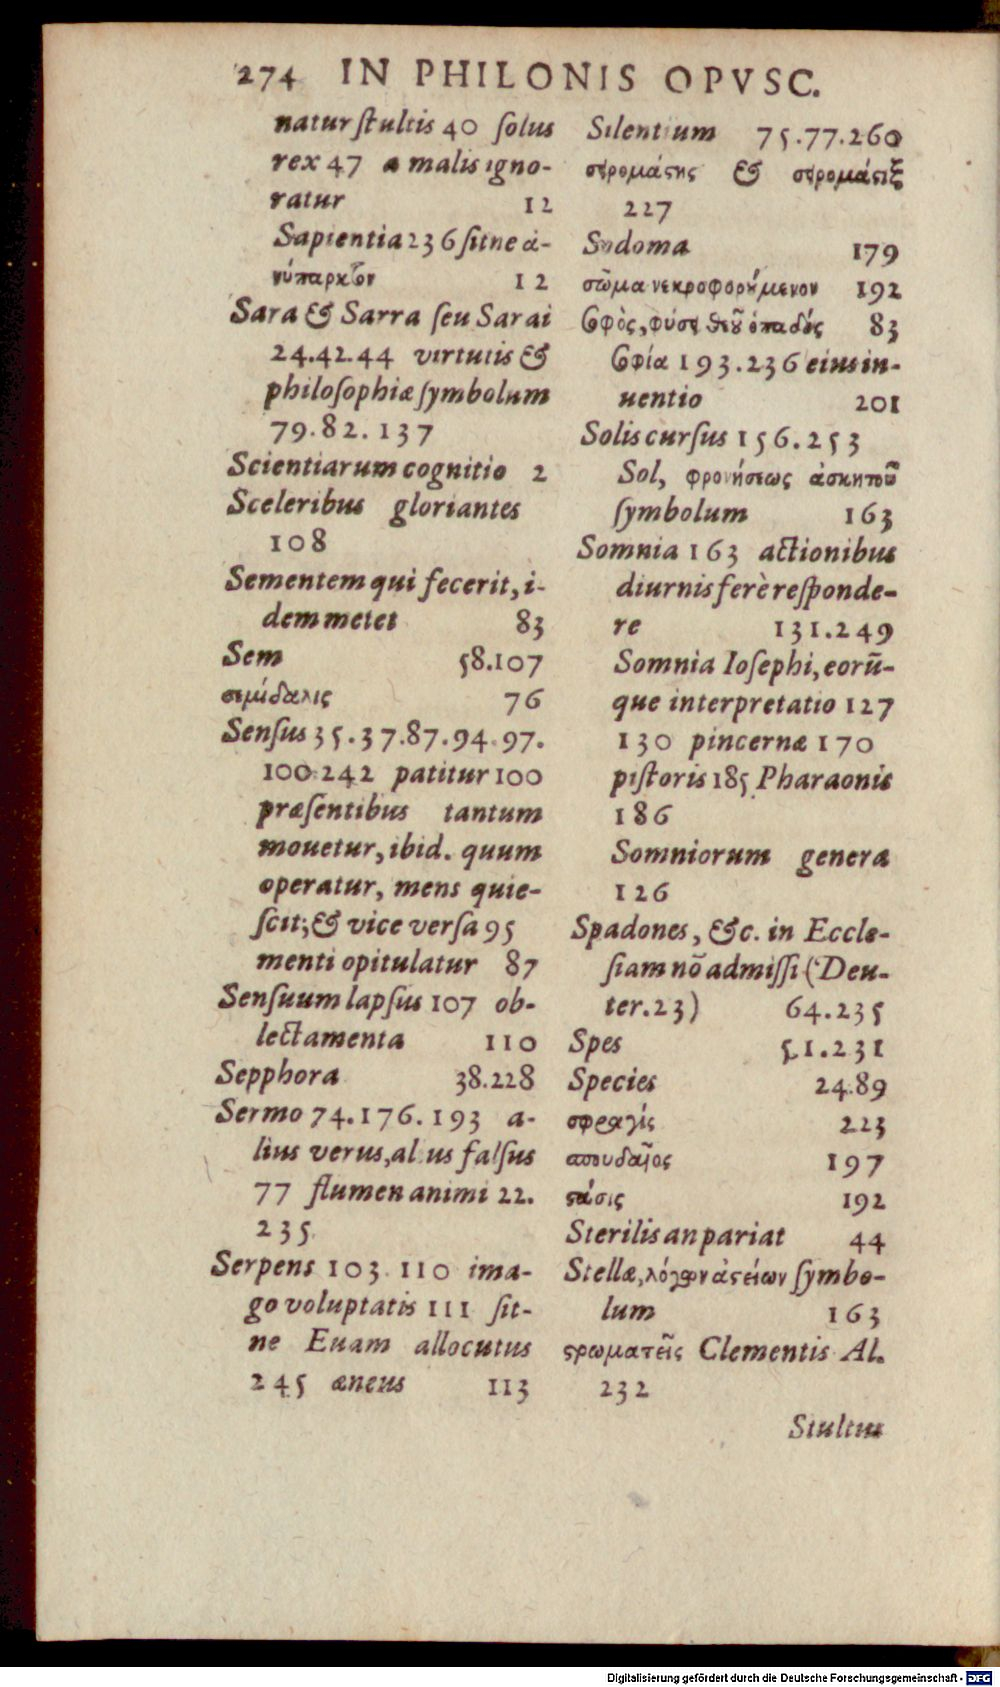 274 IN PHILONIS OPVSC.
natur ſtultis 40 ſolus
rex 47 a malis igno-
ratur 12
Sapientia 236 ſitne ἀ-
νύπαρκτον 12
Sara & Sarra ſeu Sarai
24.42.44 virtutis &
philoſophiæ ſymbolum
79.82.137
Scientiarum cognitio 2
Sceleribus gloriantes
108
Sementem qui fecerit, i-
dem metet 83
Sem 58.107
σεμίδαλις 76
Senſus 35.37.87.94.97.
100.242 patitur 100
præſentibus tantum
mouetur, ibid. quum
operatur, mens quie-
ſcit; & vice verſa 95
menti opitulatur 87
Senſuum lapſus 107 ob-
lectamenta 110
Sepphora 38.228
Sermo 74.176.193 a-
lius verus, alius falſus
77 flumen animi 22.
235.
Serpens 103.110 ima-
go voluptatis 111 ſit-
ne Euam allocutus
245 æneus 113
Silentium 75.77.260
σειρομάστης & σειρομάστιξ
227
Sodoma 179
σῶμα νεκροφορούμενον 192
σοφὸς, φύσει θεοῦ ὀπαδός 83
σοφία 193.236 eius in-
uentio 201
Solis curſus 156.253
Sol, φρονήσεως ἀσκητοῦ
ſymbolum 163
Somnia 163 actionibus
diurnis ferè reſponde-
re 131.249
Somnia Ioſephi, eorũ-
que interpretatio 127
130 pincernæ 170
piſtoris 185 Pharaonis
186
Somniorum genera
126
Spadones, &c. in Eccle-
ſiam nõ admiſſi (Deu-
ter.23) 64.235
Spes 51.231
Species 24.89
σφραγίς 223
σπουδαῖος 197
στάσις 192
Sterilis an pariat 44
Stellæ, λόγων ἀστείων ſymbo-
lum 163
στρωματεῖς Clementis Al.
232
Stultus
Digitalisierung gefördert durch die Deutsche Forschungsgemeinschaft - DFG